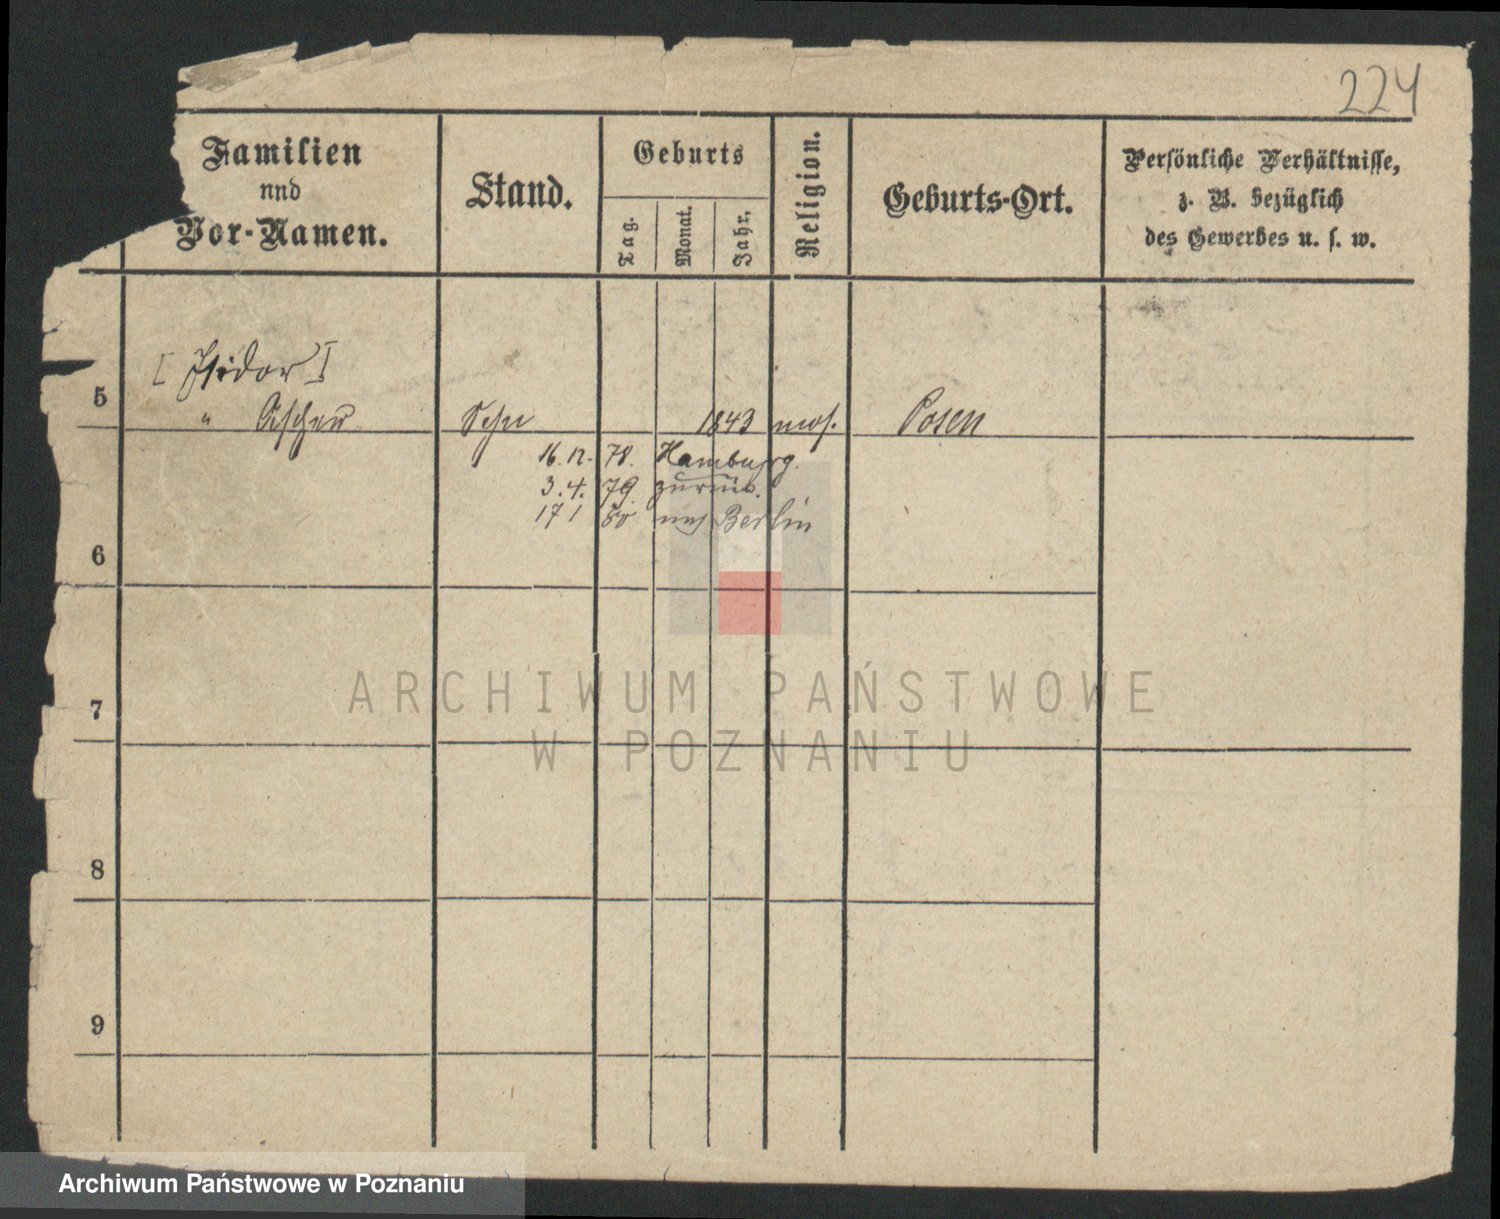 224
Familien
nnd
Vor-Namen.
Stand.
Geburts
Tag.
Monat.
Jahr.
Religion.
Geburts-Ort.
Persönliche Verhältnisse,
z. B. bezüglich
des Gewerbes u. s. w.
[Isidor]
5 " Ascher Sohn 1843 mos. Posen
16.12. 78. Hamburg.
3.4. 79 zurück.
17 1 80 nach Berlin
6
7
8
9
ARCHIWUM PAŃSTWOWE
W POZNANIU
Archiwum Państwowe w Poznaniu